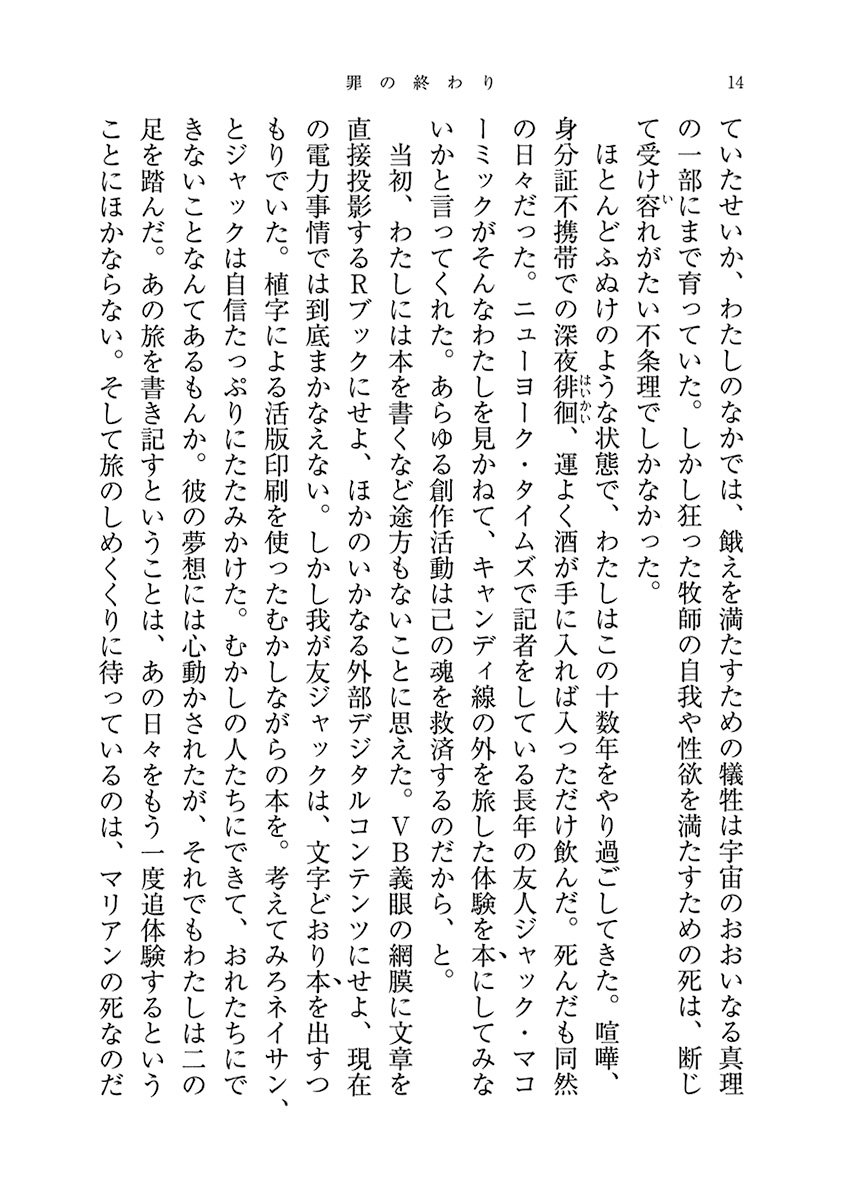 罪の終わり
14
ていたせいか、わたしのなかでは、餓えを満たすための犠牲は宇宙のおおいなる真理
の一部にまで育っていた。しかし狂った牧師の自我や性欲を満たすための死は、断じ
て受け容れがたい不条理でしかなかった。
い
　ほとんどふぬけのような状態で、わたしはこの十数年をやり過ごしてきた。喧嘩、
身分証不携帯での深夜徘徊、運よく酒が手に入れば入っただけ飲んだ。死んだも同然
はいかい
の日々だった。ニューヨーク・タイムズで記者をしている長年の友人ジャック・マコ
ーミックがそんなわたしを見かねて、キャンディ線の外を旅した体験を本にしてみな
いかと言ってくれた。あらゆる創作活動は己の魂を救済するのだから、と。
　当初、わたしには本を書くなど途方もないことに思えた。ＶＢ義眼の網膜に文章を
直接投影するＲブックにせよ、ほかのいかなる外部デジタルコンテンツにせよ、現在
の電力事情では到底まかなえない。しかし我が友ジャックは、文字どおり本を出すつ
もりでいた。植字による活版印刷を使ったむかしながらの本を。考えてみろネイサン、
とジャックは自信たっぷりにたたみかけた。むかしの人たちにできて、おれたちにで
きないことなんてあるもんか。彼の夢想には心動かされたが、それでもわたしは二の
足を踏んだ。あの旅を書き記すということは、あの日々をもう一度追体験するという
ことにほかならない。そして旅のしめくくりに待っているのは、マリアンの死なのだ